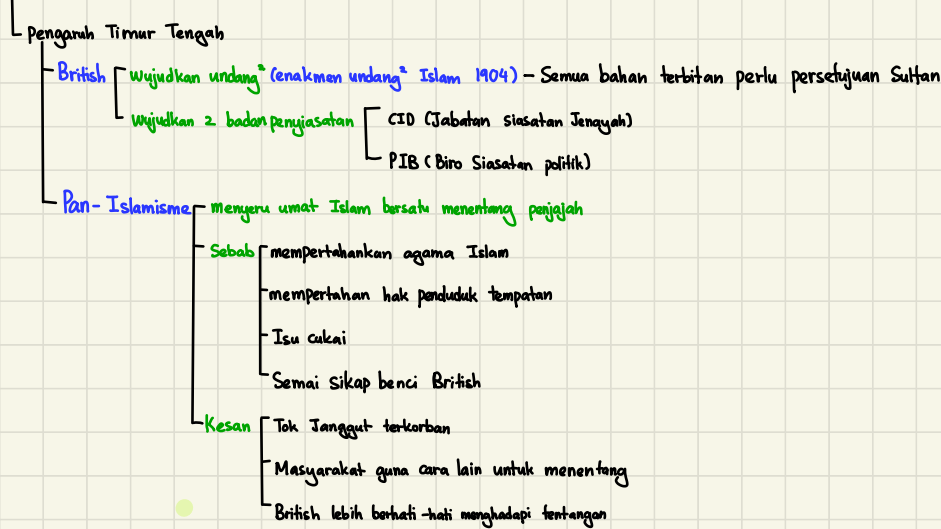 Pengaruh Timur Tengah
British
Wujudkan undang² (enakmen undang² Islam 1904) - Semua bahan terbitan perlu persetujuan Sultan
Wujudkan 2 badan penyiasatan
CID (Jabatan siasatan Jenayah)
PIB (Biro Siasatan politik)
Pan-Islamisme
menyeru umat Islam bersatu menentang penjajah
Sebab
mempertahankan agama Islam
mempertahan hak penduduk tempatan
Isu cukai
Semai sikap benci British
Kesan
Tok Janggut terkorban
Masyarakat guna cara lain untuk menentang
British lebih berhati-hati menghadapi tentangan